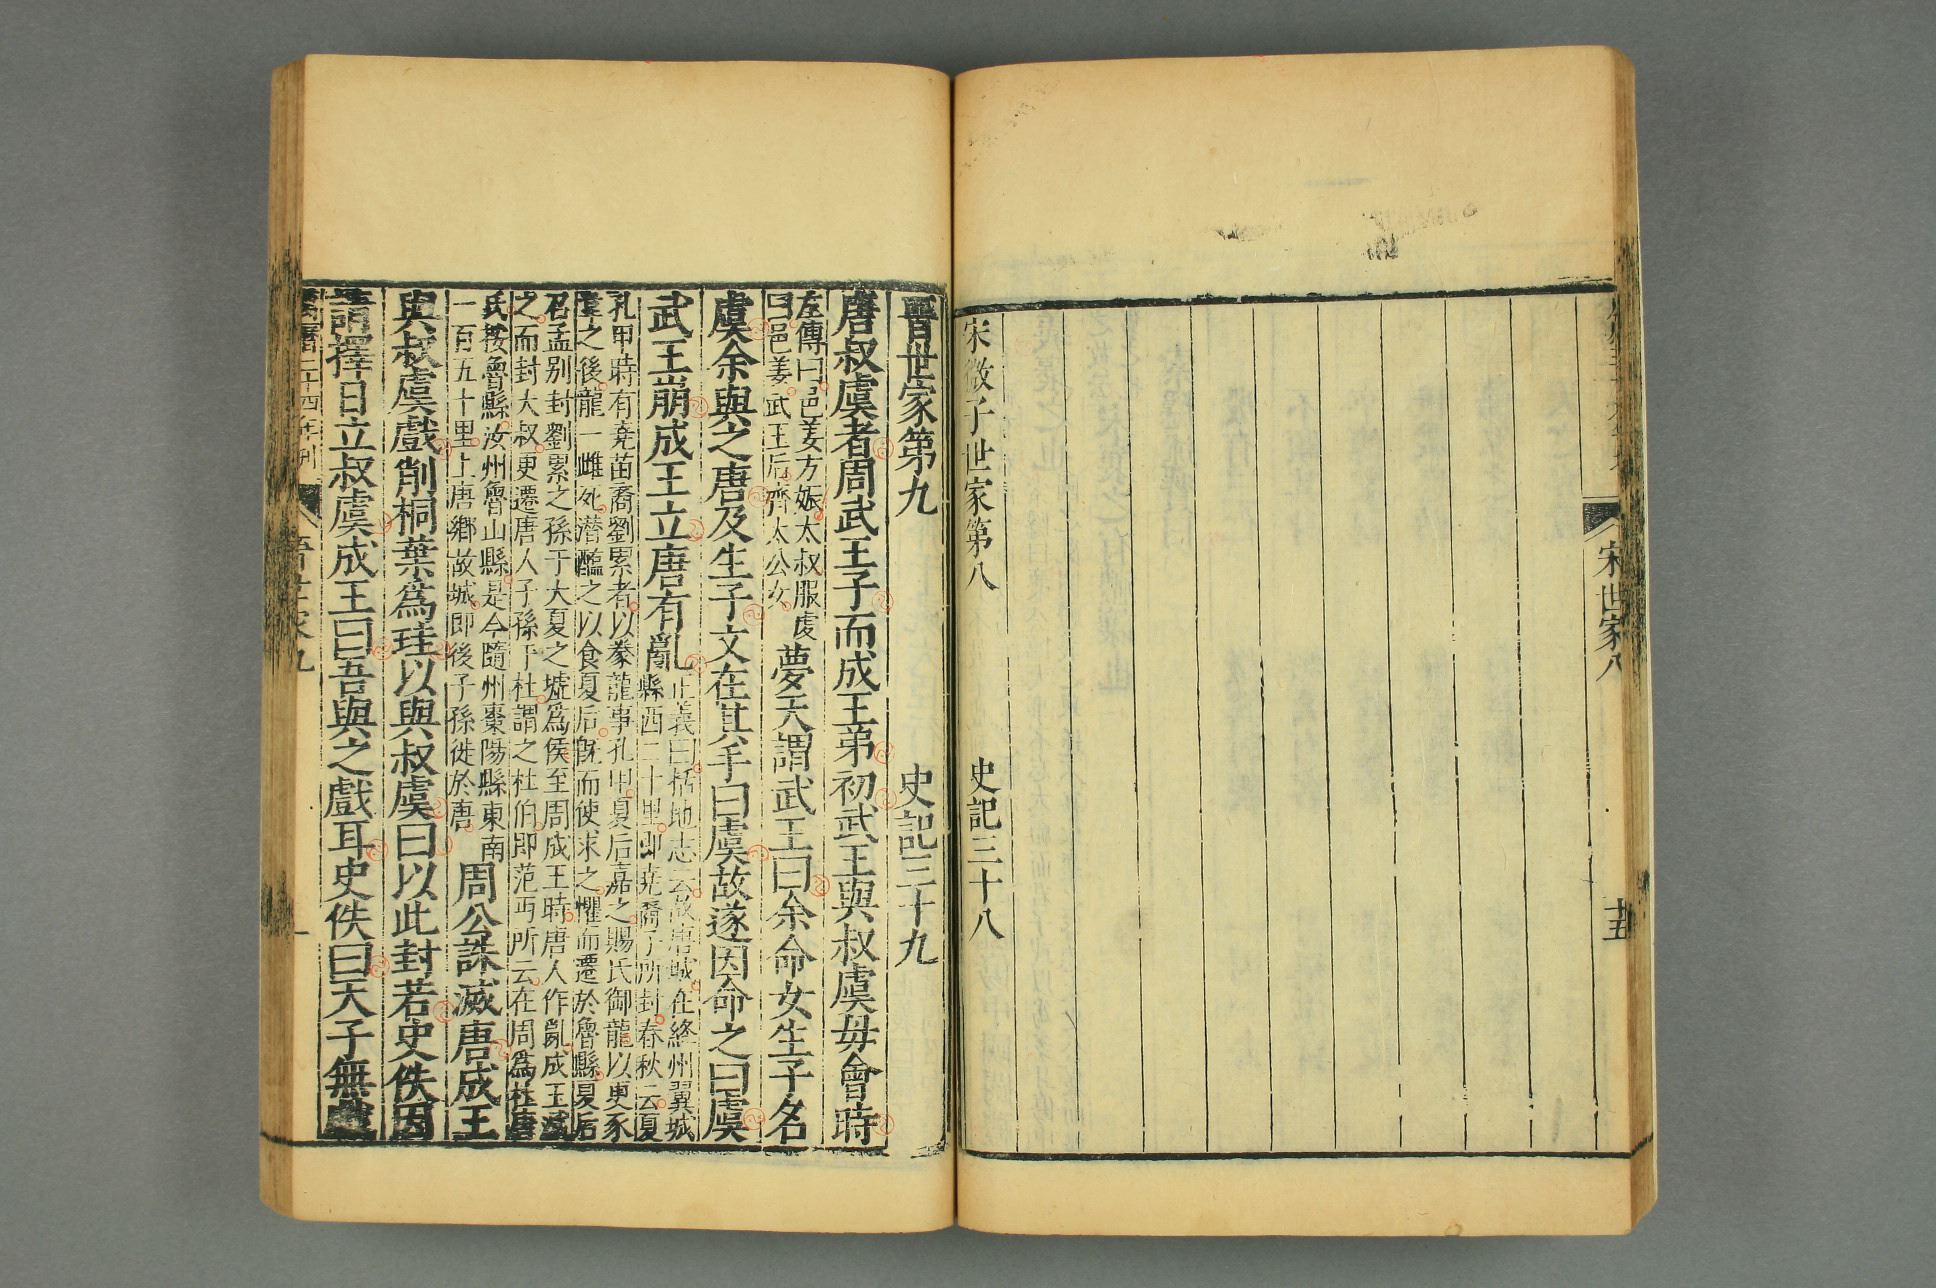 宋世家八
十五
宋微子世家第八 史記三十八
晉世家第九 史記三十九
唐叔虞者周武王子而成王弟初武王與叔虞母會時
左傳曰邑姜方娠太叔服虔
曰邑姜武王后齊太公女
夢天謂武王曰余命女生子名
虞余與之唐及生子文在其手曰虞故遂因命之曰虞
武王崩成王立唐有亂
正義曰括地志云故唐城在絳州翼城
縣西二十里即堯裔子所封春秋云夏
孔甲時有堯苗裔劉累者以豢龍事孔甲夏后嘉之賜氏御龍以更豕
韋之後龍一雌死潛醢之以食夏后既而使求之懼而遷於魯縣夏后
召孟別封劉累之孫于大夏之墟為侯至周成王時唐人作亂成王滅
之而封大叔更遷唐人子孫于杜謂之杜伯即范丐所云在周為杜唐
氏按魯縣汝州魯山縣是今隨州棗陽縣東南
一百五十里上唐鄉故城即後子孫徙於唐
周公誅滅唐成王
與叔虞戲削桐葉為珪以與叔虞曰以此封若史佚因
請擇日立叔虞成王曰吾與之戲耳史佚曰天子無戲
二十四年刊
晉世家九
一